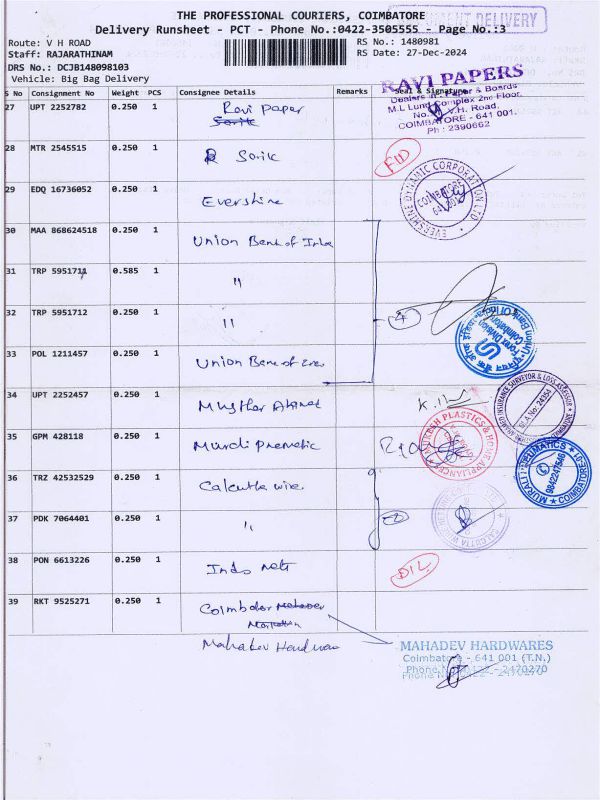 THE PROFESSIONAL COURIERS, COIMBATORE
DOCUMENT DELIVERY
Delivery Runsheet - PCT - Phone No.:0422-3505555 - Page No.:3
Route: V H ROAD
RS No.: 1480981
Staff: RAJARATHINAM
RS Date: 27-Dec-2024
DRS No.: DCJB148098103
Vehicle: Big Bag Delivery
S No Consignment No Weight PCS Consignee Details Remarks Seal & Signature
RAVI PAPERS
Dealers in: Paper & Boards
M.L Lund Complex 2nd Floor,
V.H. Road,
COIMBATORE - 641 001.
Ph : 2390662
27 UPT 2252782 0.250 1 Ravi paper
Sorik
28 MTR 2545515 0.250 1 Sorik
29 EDQ 16736052 0.250 1 Evershine
EVERSHINE DYNAMIC CORPORATION LTD
COIMBATORE
30 MAA 868624518 0.250 1 Union Bank of India
31 TRP 5951711 0.585 1 "
32 TRP 5951712 0.250 1 "
4
Union Bank Of India
Forex Division
Coimbatore
33 POL 1211457 0.250 1 Union Bank of
34 UPT 2252457 0.250 1
INSURANCE SURVEYOR & LOSS ASSESSOR
SLA No: 24354
35 GPM 428118 0.250 1
MUKESH PLASTICS & HOME APPLIANCES
MURALI PNEUMATICS
COIMBATORE-01
36 TRZ 42532529 0.250 1 Calcutta wire
37 PDK 7064401 0.250 1 "
2
38 PON 6613226 0.250 1 Indo
D/L
39 RKT 9525271 0.250 1 Coimbatore Mahadev
Mahadev Hardware
MAHADEV HARDWARES
Coimbatore - 641 001 (T.N.)
Phone No.0422 - 2470270